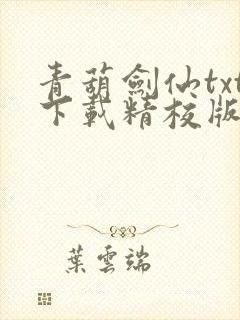 青葫劍仙txt
下載精校版
葉雲端